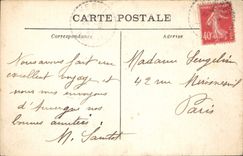 CARTE POSTALE
Correspondance
Adresse
40c
Nous avons fait un
excellent voyage et
nous vous envoyons
d'Auvergne nos
bonnes amitiés
M.
Madame
42 rue
Paris